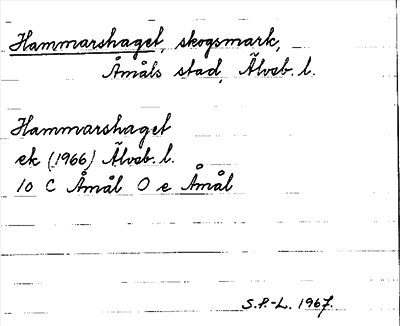 Hammarshaget, skogsmark,
Åmåls stad, Älvsb. l.
Hammarshaget
ek (1966) Älvsb. l.
10 C Åmål O e Åmål
S.P.-L. 1967.